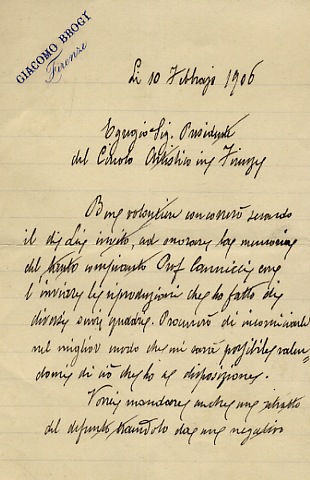 GIACOMO BROGI
Firenze
Li 10 Febbrajo 1906
Egregio Sig. Presidente
del Circolo Artistico in Firenze
Ben volentieri concorrerò secondo
il di Lei invito, ad onorare la memoria
del tanto compianto Prof. Cannicci con
l'inviare le riproduzioni che ho fatto di
diversi suoi quadri. Procurerò di incorniciarle
nel miglior modo che mi sarà possibile valen-
domi di ciò che ho a disposizione.
Vorrei mandare anche un ritratto
del defunto traendolo da un negativo